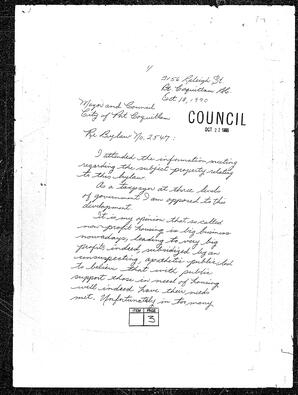 2156 Raleigh St.
Pt. Coquitlam B.C.
Oct. 18, 1990
Mayor and Council
City of Port Coquitlam
COUNCIL
OCT 22 1990
Re Bylaw No. 2547:
I attended the information meeting
regarding the subject property relating
to this bylaw.
As a taxpayer at three levels
of government I am opposed to this
development.
It is my opinion that so called
non-profit housing is big business
nowadays, leading to very big
profits indeed, subsidized by an
unsuspecting, apathetic public led
to believe that with public
support those in need of housing
will indeed have their needs
met. Unfortunately in too many
ITEM PAGE
3